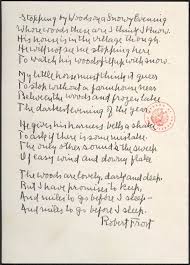 Stopping by Woods on a Snowy Evening
Whose woods these are I think I know.
His house is in the village though.
He will not see me stopping here
To watch his woods fill up with snow.
My little horse must think it queer
To stop without a farmhouse near
Between the woods and frozen lake
The darkest evening of the year.
He gives his harness bells a shake
To ask if there is some mistake.
The only other sound's the sweep
Of easy wind and downy flake.
The woods are lovely, dark and deep,
But I have promises to keep,
And miles to go before I sleep—
And miles to go before I sleep.
Robert Frost